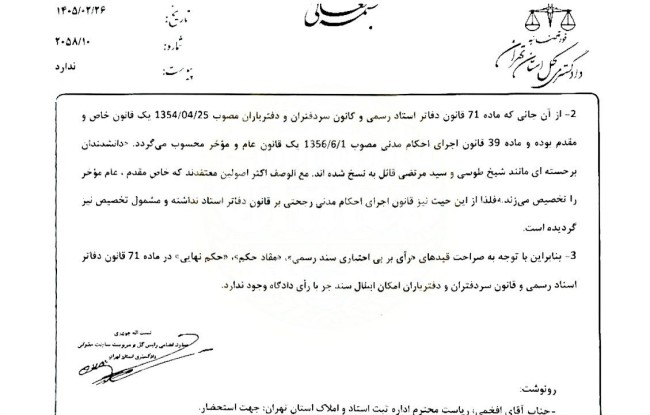 بسمه تعالی
قوه قضائیه
دادگستری کل استان تهران
تاریخ: ۱۴۰۵/۰۲/۲۶
شماره: ۲۰۵۸/۱۰
پیوست: ندارد
2- از آن جائی که ماده 71 قانون دفاتر اسناد رسمی و کانون سردفتران و دفتریاران مصوب 1354/04/25 یک قانون خاص و
مقدم بوده و ماده 39 قانون اجرای احکام مدنی مصوب 1356/6/1 یک قانون عام و مؤخر محسوب می‌گردد. «دانشمندان
برجسته ای مانند شیخ طوسی و سید مرتضی قائل به نسخ شده اند. مع الوصف اکثر اصولین معتقدند که خاص مقدم ، عام مؤخر
را تخصیص می‌زند.»فلذا از این حیث نیز قانون اجرای احکام مدنی رجحتی بر قانون دفاتر اسناد نداشته و مشمول تخصیص نیز
گردیده است.
3- بنابراین با توجه به صراحت قیدهای «رأی بر بی اعتباری سند رسمی»، «مفاد حکم»، «حکم نهایی» در ماده 71 قانون دفاتر
اسناد رسمی و قانون سردفتران و دفتریاران امکان ابطال سند جز با رأی دادگاه وجود ندارد.
معاون قضایی رئیس کل و سرپرست معاونت حقوقی
دادگستری استان تهران
رونوشت:
-جناب آقای افخمی، ریاست محترم اداره ثبت اسناد و املاک استان تهران: جهت استحضار.